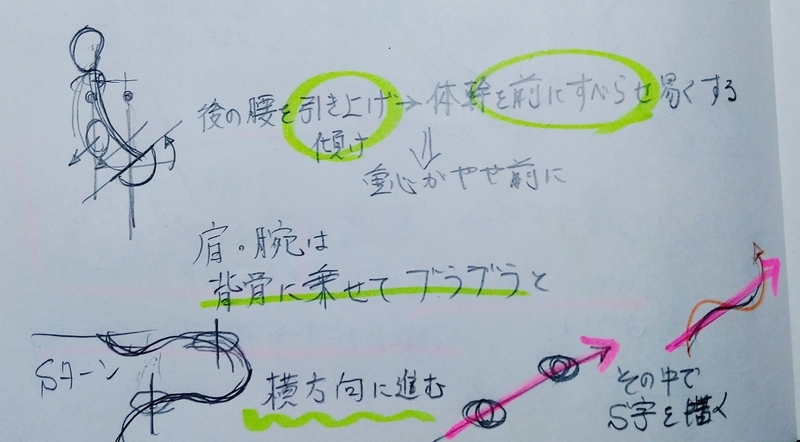 後の腰を引き上げ→体幹を前にすべらせ易くする
傾け
重心がやせ前に
肩・腕は
背骨に乗せてブラブラと
Sターン
横方向に進む
その中で
S字を描く